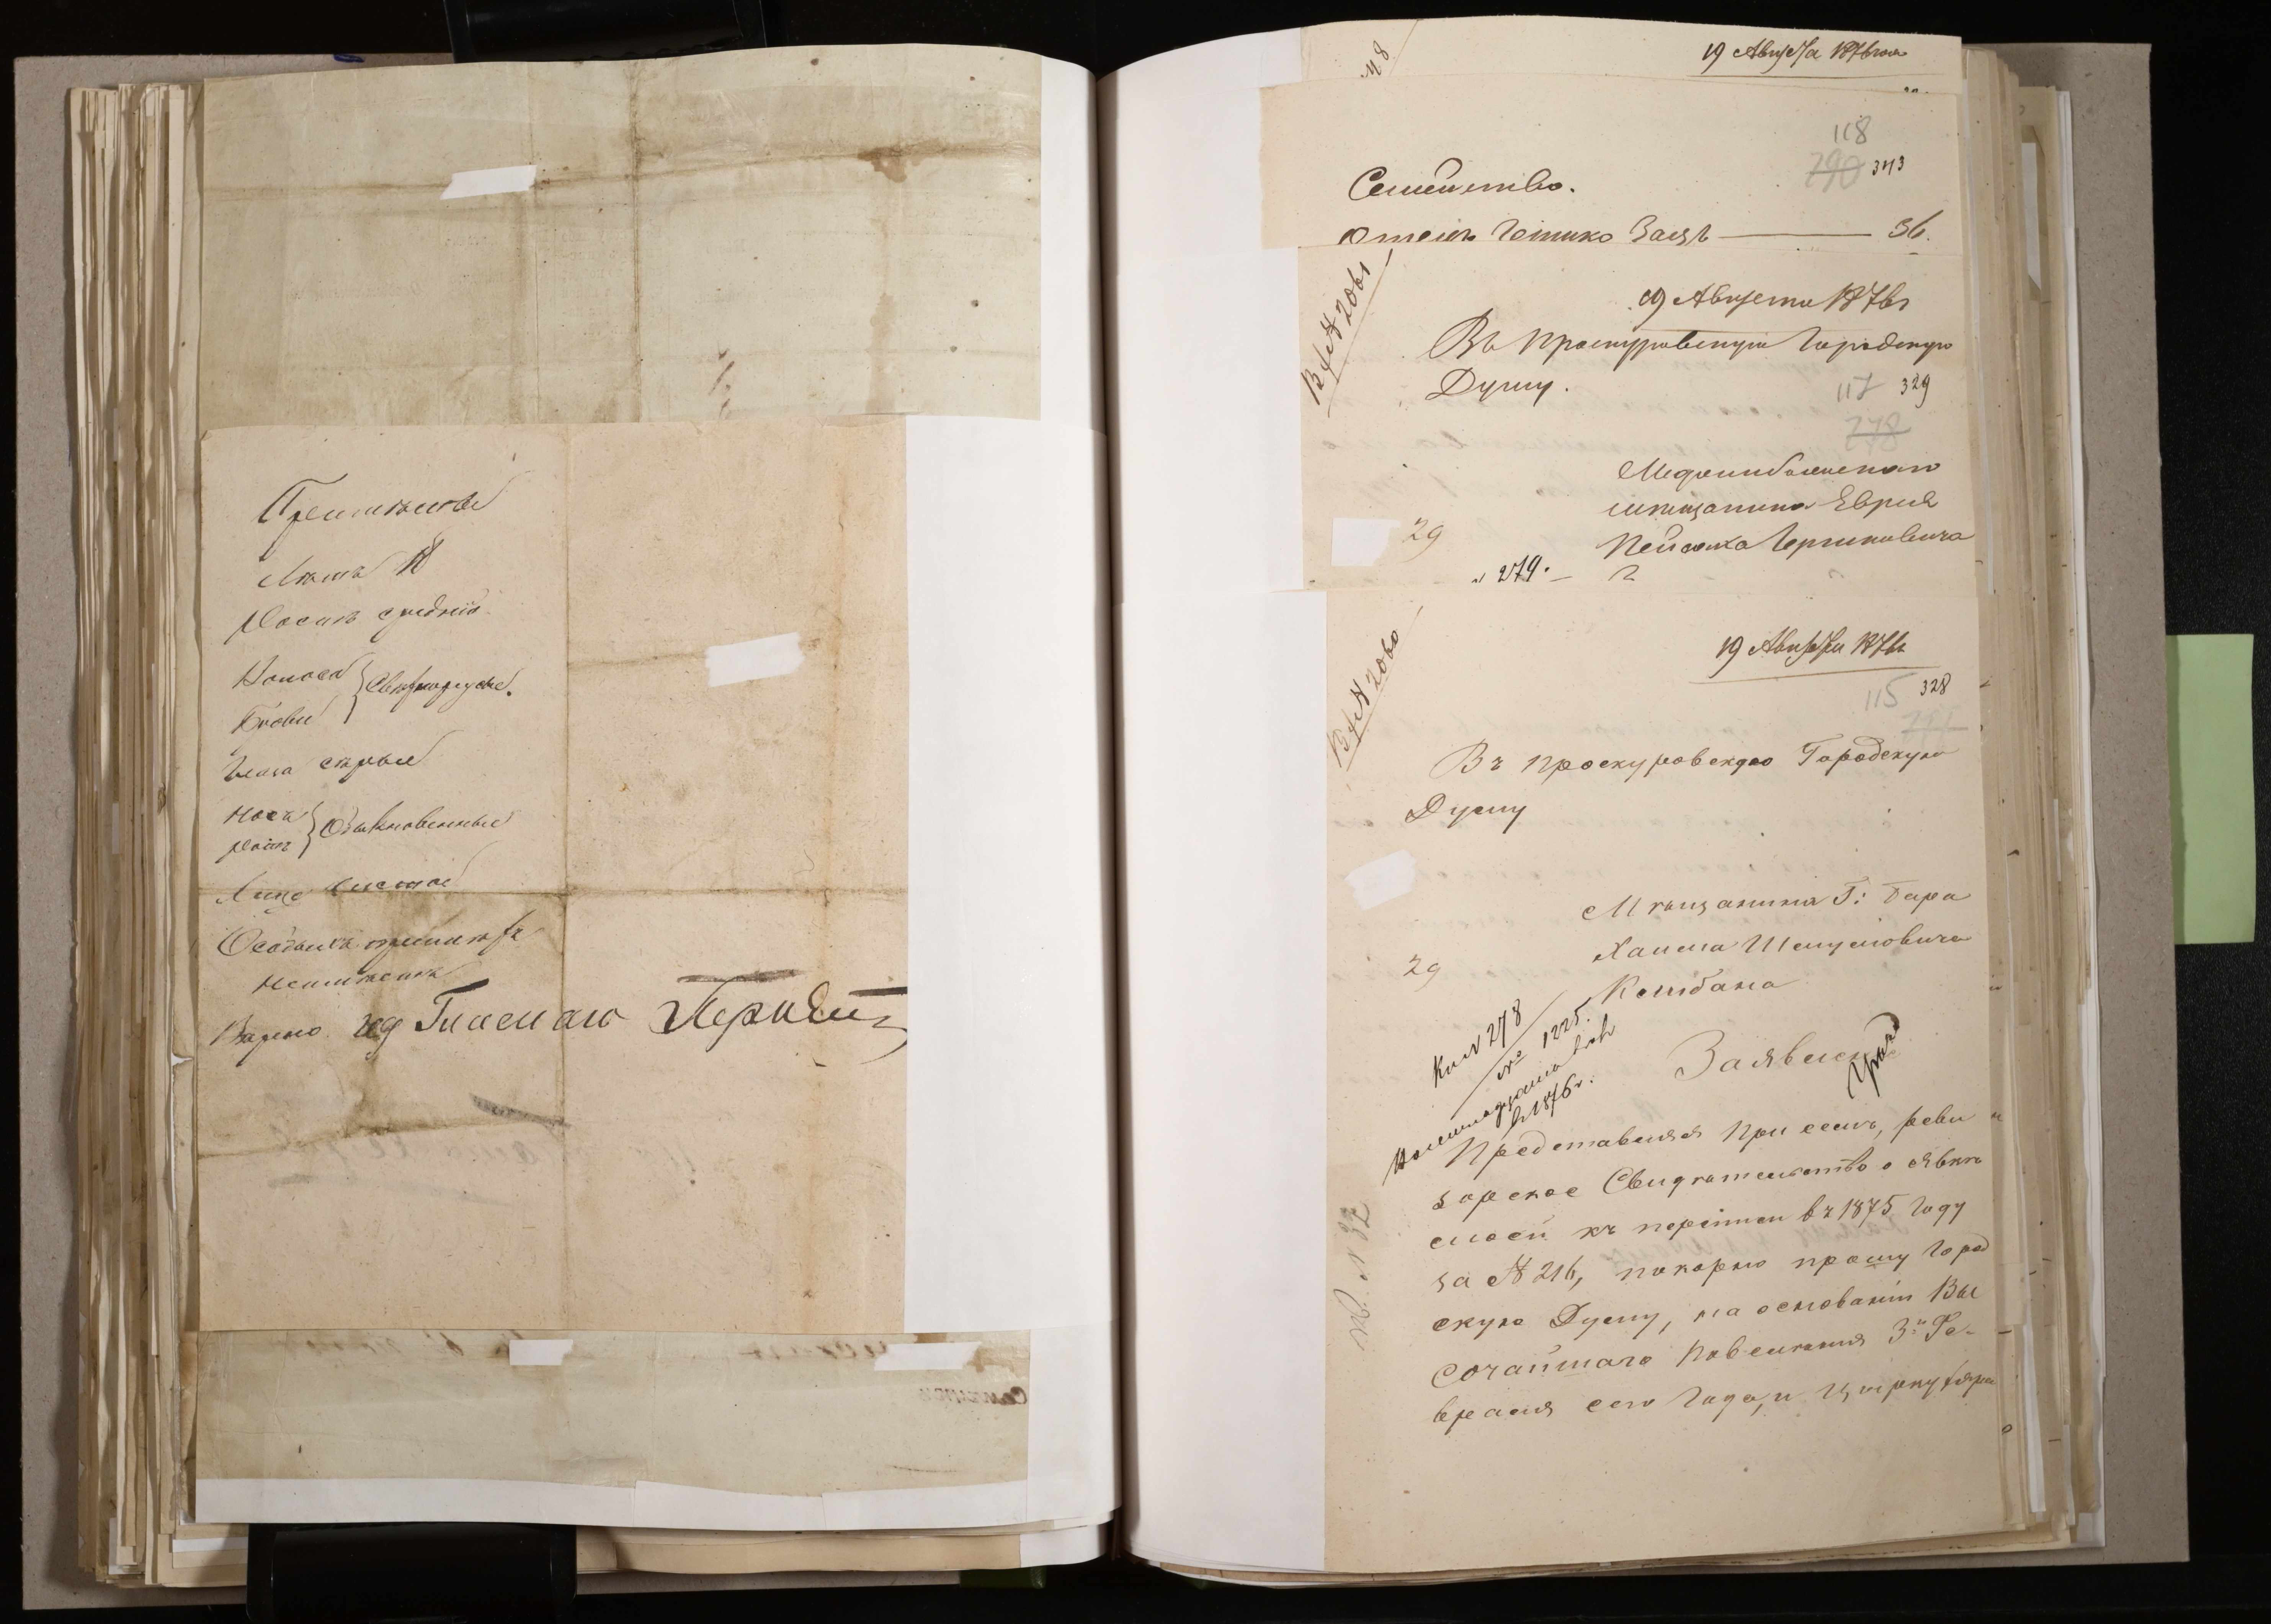 Примѣты
Лѣтъ 18
Ростъ средній
Волоса
Брови
Свѣтлорусые.
Глаза сѣрые
Носъ
Ротъ
Обыкновенные
Лице чистое
Особыхъ примѣтъ
неимѣетъ
Вѣрно
19 Августа 1876 года
118
290 343
Семейство.
Отецъ Іошко Заецъ — 36.
Вх № 2061
19 Августа 1876 г
Въ Проскуровскую Городскую
Думу.
117 329
278
Меджибожскаго
мѣщанина Еврея
Пейсаха Гершковича
29
№ 279.
Вх № 2060
19 Августа 1876 г
115 328
Въ Проскуровскую Городскую
Думу
Мѣщанина Г: Бара
Хаима Шмулиовича
29
Кн № 278
№ 1225.
въ 1876 г.
Заявление
Представляя при семъ, реви
зорское Свидѣтельство о явкѣ
моей къ переписи въ 1875 году
за № 216, покорно прошу Город
скую Думу, на основаніи Вы
сочайшаго Повеления 3го Фе-
враля сего года, и циркуляра
№ 32